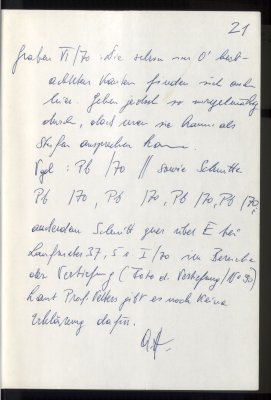 21
Graben VI/70 : Die schon im O' beob-
achteten Kanten finden sich auch
hier. Gehen jedoch so unregelmäßig
durch, daß man sie kaum als
Stufen ansprechen kann.
Vgl : Pb /70 // sowie Schnitte
Pb /70, Pb /70, Pb /70, Pb /70
außerdem Schnitt quer über E bei
Laufmeter 37,5 I/70 im Bereiche
der Vertiefung (Foto d. Vertiefung
Laut Prof. gibt es noch keine
Erklärung dafür.